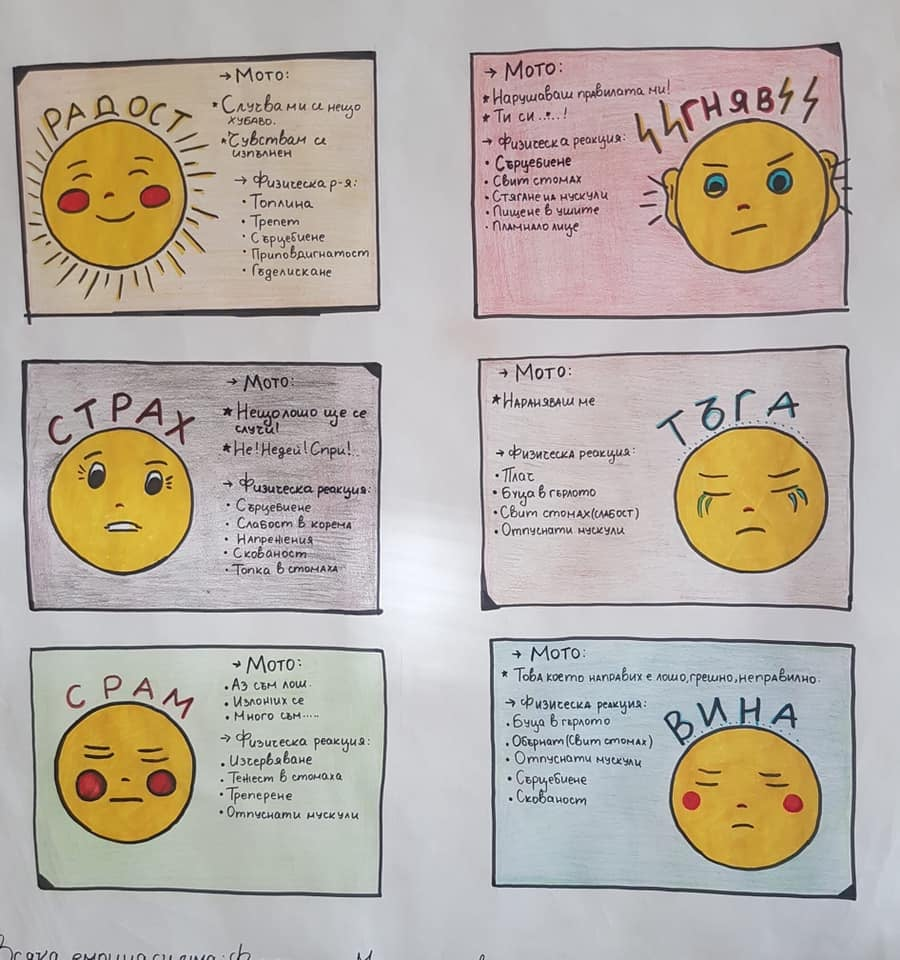 РАДОСТ
→ Мото:
* Случва ми се нещо
хубаво.
* Чувствам се
изпълнен
→ Физическа р-я:
• Топлина
• Трепет
• Сърцебиене
• Приповдигнатост
• Гъделискане
ГНЯВ
→ Мото:
* Нарушаваш правилата ми!
* Ти си .....!
→ Физическа реакция:
• Сърцебиене
• Свит стомах
• Стягане на мускули
• Пищене в ушите
• Пламнало лице
СТРАХ
→ Мото:
* Нещо лошо ще се
случи!
* Не! Недей! Спри!..
→ Физическа реакция:
• Сърцебиене
• Слабост в корема
• Напрежения
• Скованост
• Топка в стомаха
ТЪГА
→ Мото:
* Нараняваш ме
→ Физическа реакция:
• Плач
• Буца в гърлото
• Свит стомах (слабост)
• Отпуснати мускули
СРАМ
→ Мото:
• Аз съм лош.
• Изложих се
• Много съм.....
→ Физическа реакция:
• Изчервяване
• Тежест в стомаха
• Треперене
• Отпуснати мускули
ВИНА
→ Мото:
* Това което направих е лошо, грешно, неправилно.
→ Физическа реакция:
• Буца в гърлото
• Обърнат (Свит стомах)
• Отпуснати мускули
• Сърцебиене
• Скованост
Всяка емоция си има: